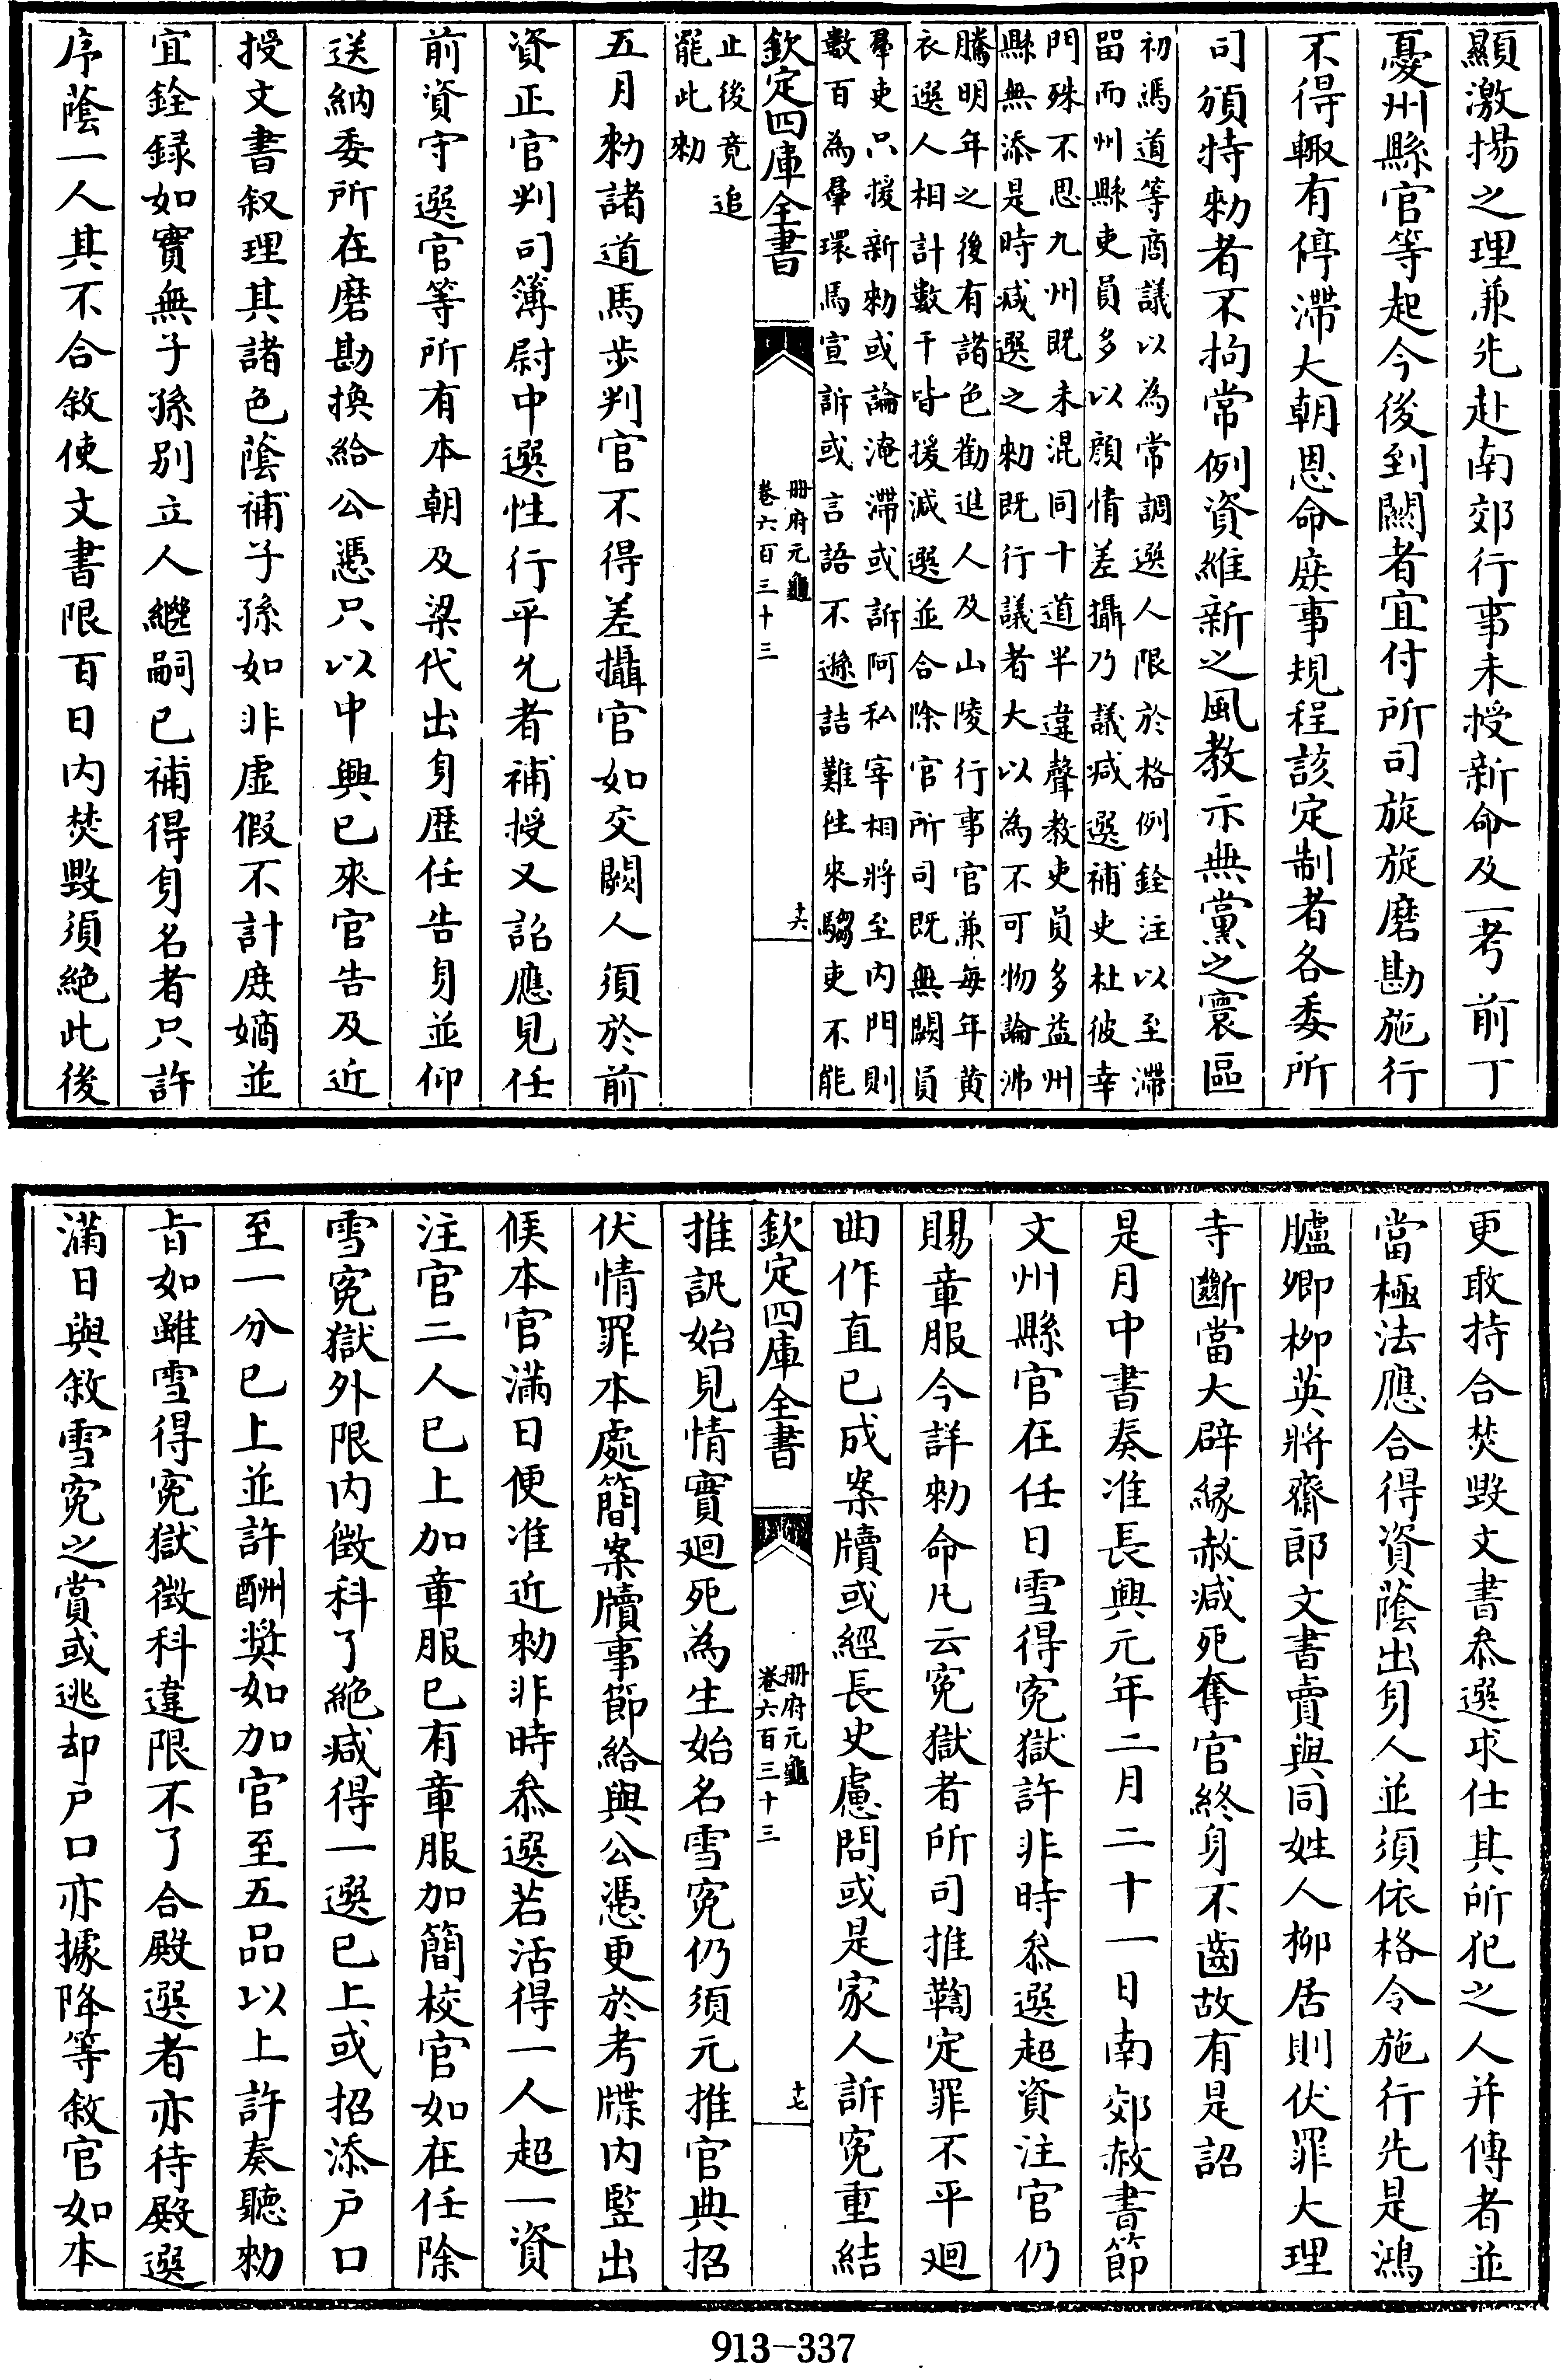 顯激揚之理兼先赴南郊行事未授新命及一考前丁
憂州縣官等起今後到闕者宜付所司旋旋磨勘施行
不得輙有停滯大朝恩命庶事規程該定制者各委所
司頒特勅者不拘常例資維新之風教示無黨之寰區
初馮道等商議以為常調選人限於格例銓注以至滯
留而州縣吏員多以顔情差攝乃議減選補吏杜彼幸
門殊不思九州既未混同十道半違聲教吏員多益州
縣無添是時減選之勅既行議者大以為不可物論沸
騰明年之後有諸色勸進人及山陵行事官兼每年黄
衣選人相計數千皆援減選並合除官所司既無闕員
羣吏只援新勅或論淹滯或訴阿私宰相將至内門則
數百為羣環馬宣訴或言語不遜詰難往來騶吏不能
欽定四庫全書
册府元龜
卷六百三十三
十六
止後竟追
罷此勅
五月勅諸道馬步判官不得差攝官如交闕人須於前
資正官判司簿尉中選性行平允者補授又詔應見任
前資守選官等所有本朝及梁代出身歴任告身並仰
送納委所在磨勘換給公憑只以中興已來官告及近
授文書叙理其諸色蔭補子孫如非虚假不計庶嫡並
宜銓録如實無子孫别立人繼嗣已補得身名者只許
序蔭一人其不合敘使文書限百日内焚毁須絶此後
更敢持合焚毁文書叅選求仕其所犯之人并傳者並
當極法應合得資蔭出身人並須依格令施行先是鴻
臚卿柳英將齋郎文書賣與同姓人柳居則伏罪大理
寺斷當大辟縁赦减死奪官終身不齒故有是詔
是月中書奏准長興元年二月二十一日南郊赦書節
文州縣官在任日雪得寃獄許非時叅選超資注官仍
賜章服今詳勅命凡云寃獄者所司推鞫定罪不平廻
曲作直已成案牘或經長史慮問或是家人訴寃重結
欽定四庫全書
册府元龜
卷六百三十三
十七
推訊始見情實廻死為生始名雪寃仍須元推官典招
伏情罪本處簡案牘事節給與公憑更於考牒内豎出
候本官滿日便准近勅非時叅選若活得一人超一資
注官二人已上加章服已有章服加簡校官如在任除
雪寃獄外限内徴科了絶减得一選已上或招添户口
至一分已上並許酬奬如加官至五品以上許奏聽勅
旨如雖雪得寃獄徴科違限不了合殿選者亦待殿選
滿日與敘雪寃之賞或逃却户口亦據降等敘官如本
913-337